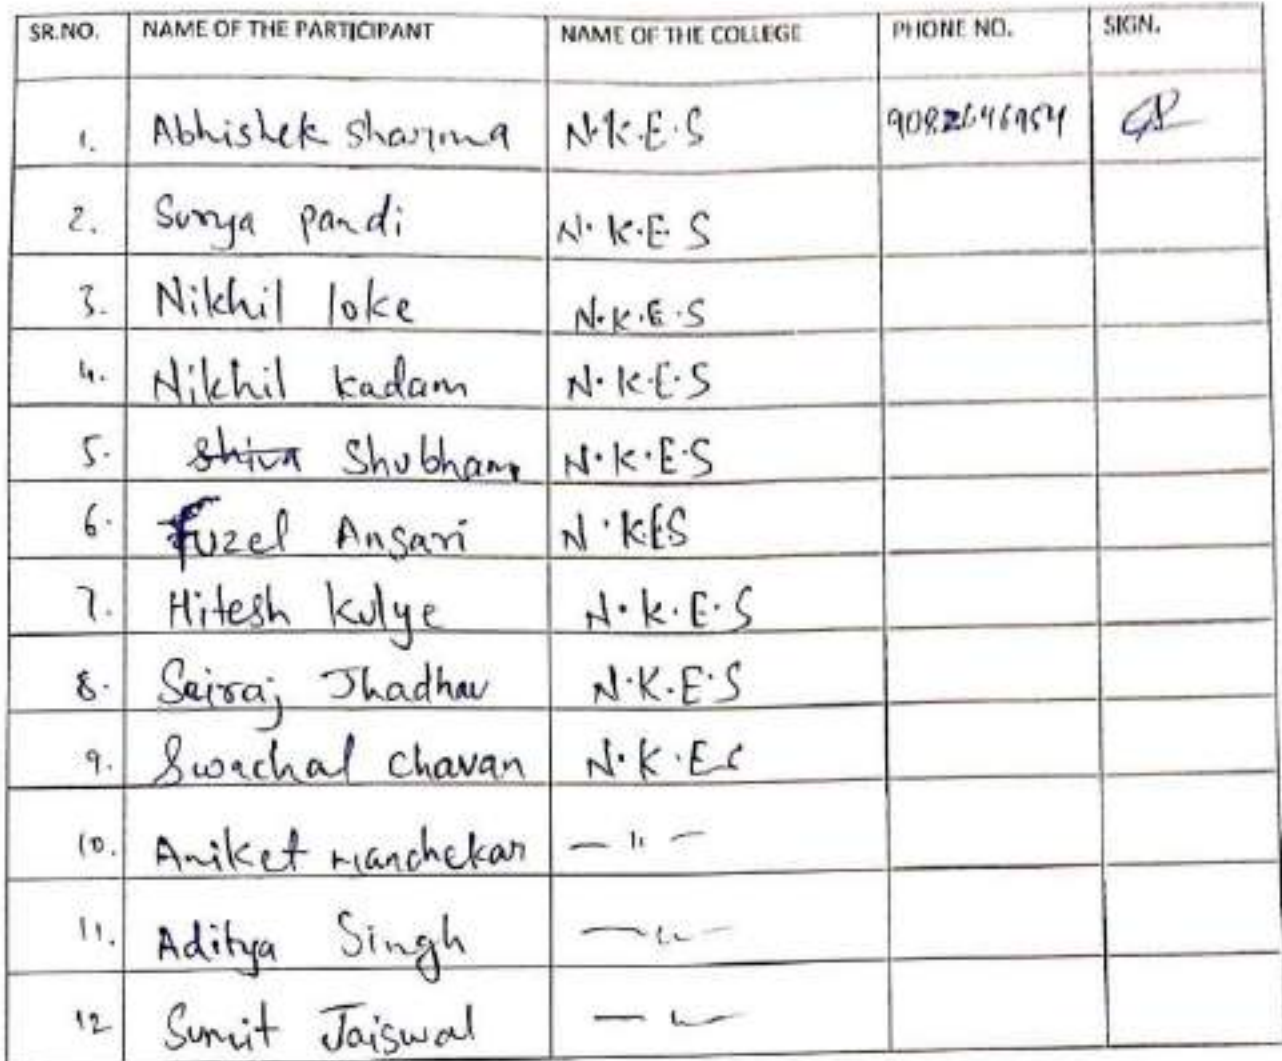 SR.NO. NAME OF THE PARTICIPANT NAME OF THE COLLEGE PHONE NO. SIGN.
1. Abhishek Sharma N.K.E.S
2. Surya pandi N.K.E.S
3. Nikhil loke N.K.E.S
4. Nikhil kadam N.K.E.S
5. Shiva Shubham N.K.E.S
6. Fuzel Ansari N.KES
7. Hitesh Kulye N.K.E.S
8. Sairaj Jhadhav N.K.E.S
9. Swachal Chavan N.K.ES
10. Aniket Manchekar — " —
11. Aditya Singh — " —
12 Sumit Jaiswal — " —